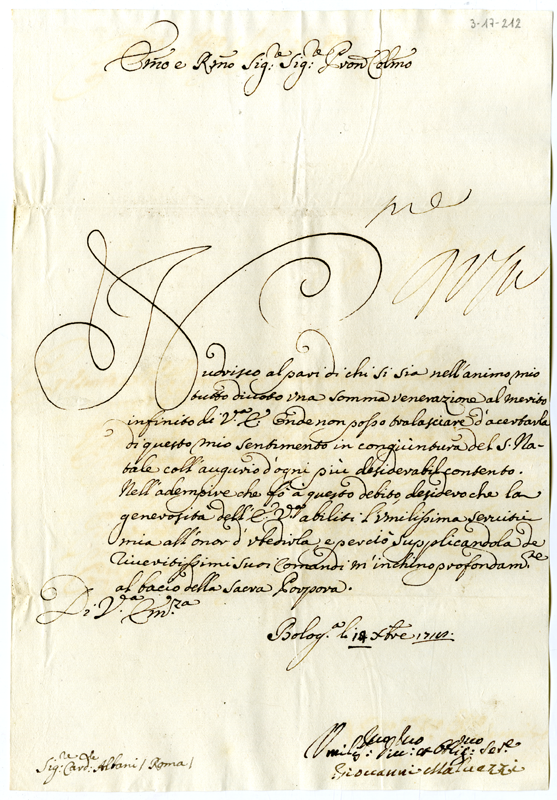 3-17-212
Emo e Rmo Sig.re Sig.re Pron Colmo
Nudrisco al pari di chi si sia nell'animo mio
tutto divoto vna somma venerazione al merito
infinito di V.ra E. Onde non posso tralasciare d'acertarla
di questo mio sentimento in congiuntura del S. Na-
tale coll'augurio d'ogni più desiderabil contento.
Nell'adempire che fò à questo debito desidero che la
generosità dell'E. V.ra abiliti l'vmilissima servitù
mia all'onor d'vbedirla, e perciò supplicandola de
riveritissimi suoi comandi m'inchino profondam.te
al bacio della Sacra Porpora.
Di V.ra Em.za
Bolog.a li 14 Xbre
Vmilis.mo Div.mo et Oblig.mo Ser.e
Sig.re Card.le Albani / Roma /
Giovanni Malvezzi